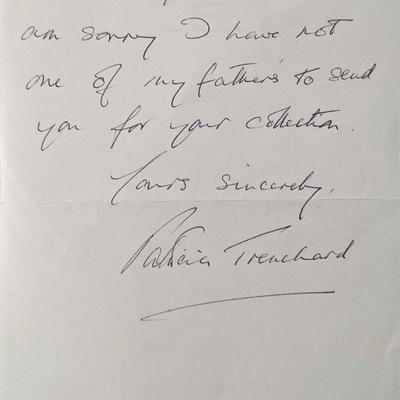 am sorry I have not
one of my father's to send
you for your collection.
Yours sincerely,
Patricia Trenchard